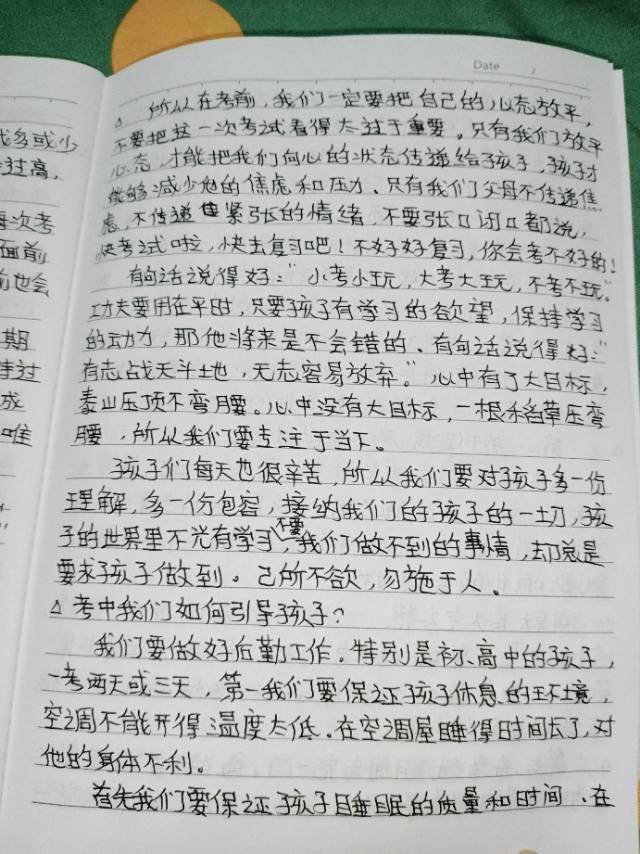 Date /
我多或少
过高,
每次考
面前
前也会
期
持过
成
唯
△ 所以在考前,我们一定要把自己的心态放平,
不要把这一次考试看得太过于重要,只有我们放平
心态,才能把我们内心的状态传递给孩子,孩子才
能够减少他的焦虑和压力、只有我们父母不传递焦
虑,不传递紧张的情绪,不要张口闭口都说,
快考试啦,快去复习吧!不好好复习,你会考不好的!
有句话说得好:"小考小玩,大考大玩,不考不玩。"
功夫要用在平时,只要孩子有学习的欲望,保持学习
的动力,那他将来是不会错的、有句话说得好:"
有志战天斗地,无志容易放弃。"心中有了大目标,
泰山压顶不弯腰。心中没有大目标,一根稻草压弯
腰,所以我们要专注于当下。
孩子们每天也很辛苦,所以我们要对孩子多一份
理解,多一份包容,接纳我们的孩子的一切,孩
子的世界里不光有学习,不要我们做不到的事情,却总是
要求孩子做到。己所不欲,勿施于人。
△ 考中我们如何引导孩子?
我们要做好后勤工作。特别是初、高中的孩子,
一考两天或三天,第一我们要保证孩子休息的环境,
空调不能开得温度太低。在空调屋睡得时间长了,对
他的身体不利。
首先我们要保证孩子睡眠的质量和时间、在